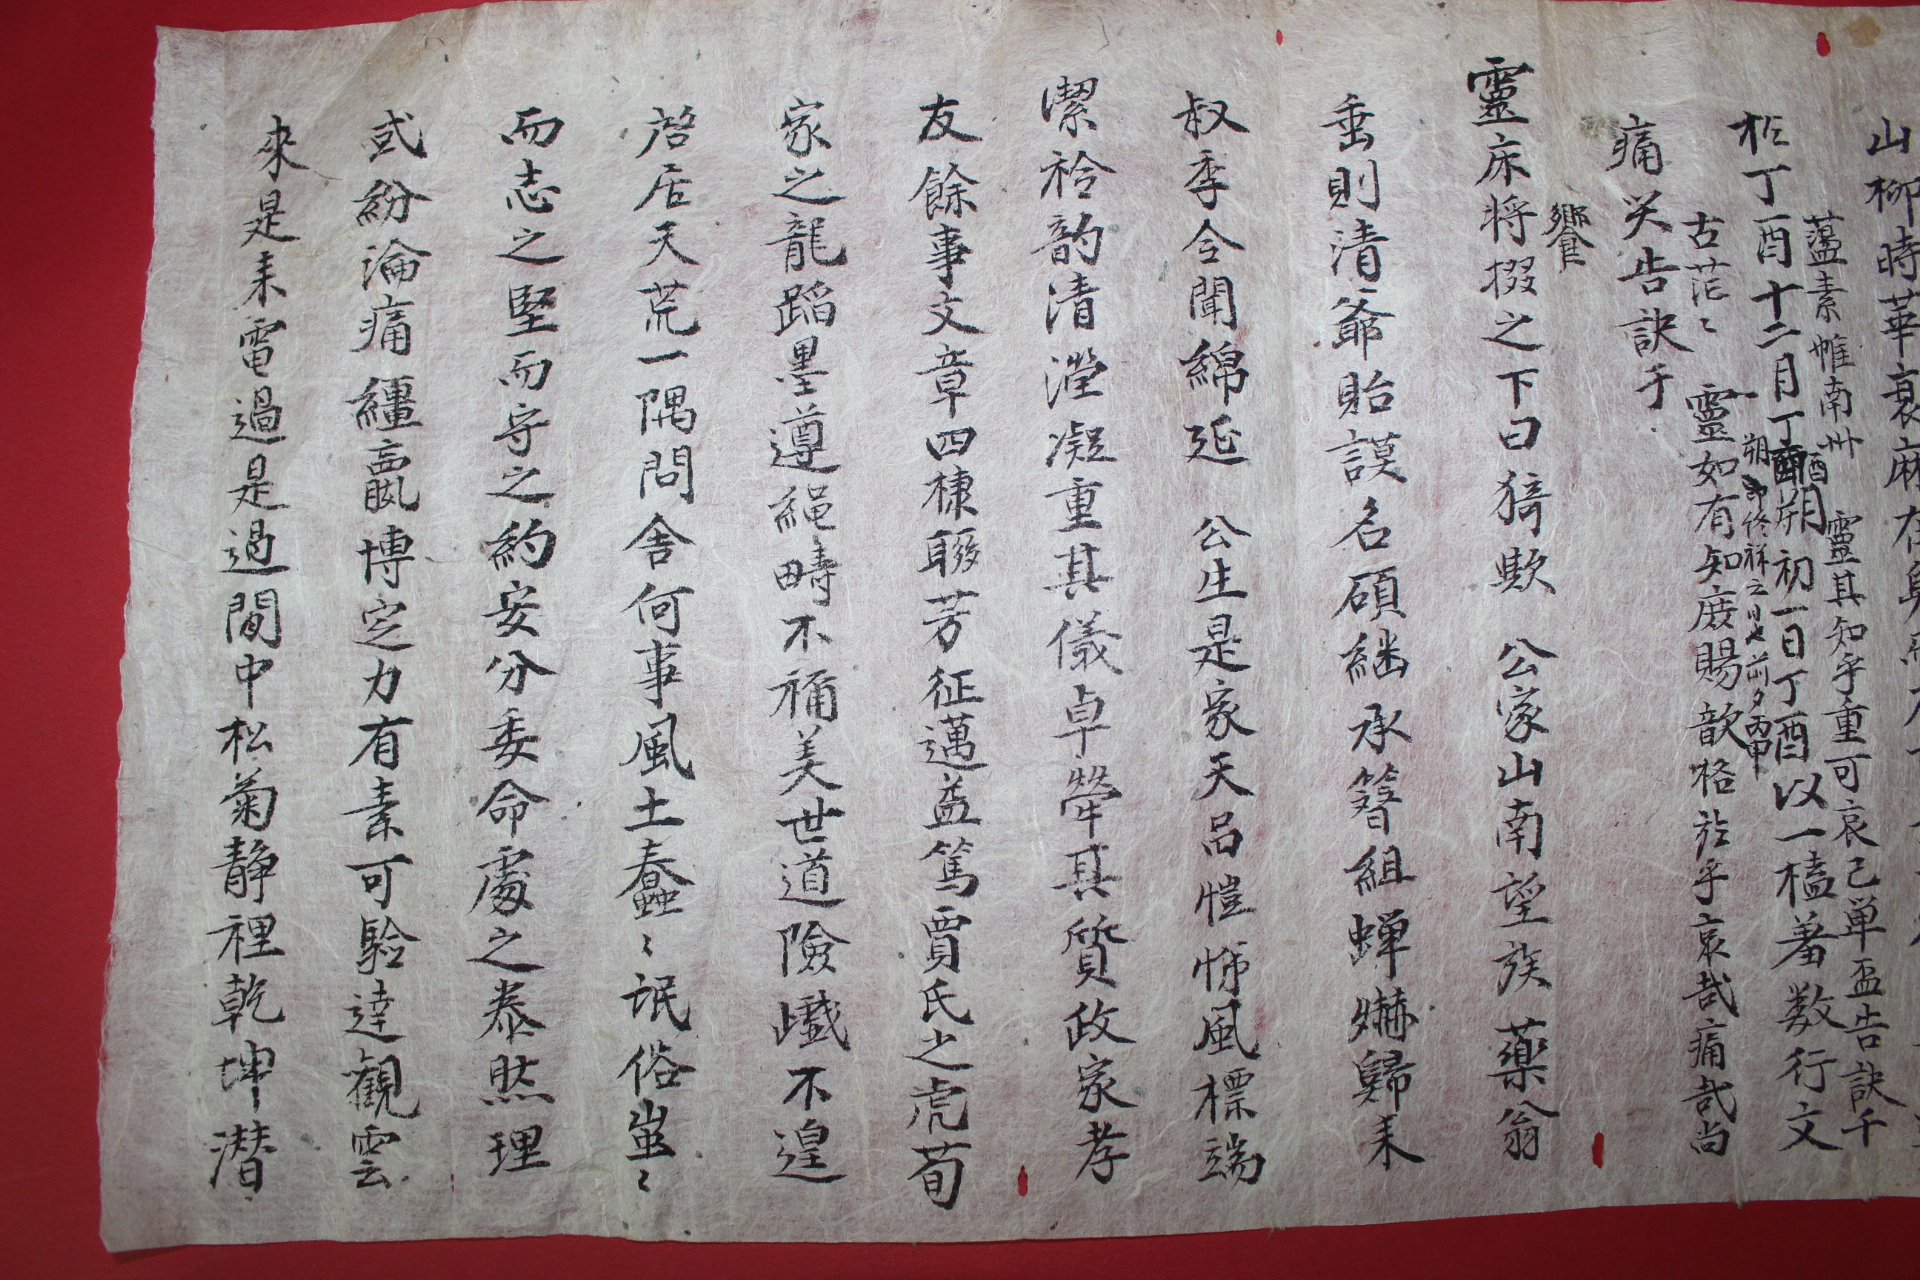 山柳時華衰麻在身
蘊素帷南卅 靈其知乎重可哀已單盃告訣千
松丁酉十二月丁酉朔初一日丁酉以一榼羞数行文
朔 祥之 前夕丙申
古茫〻 靈如有知庶賜歆格於乎哀哉痛哉尚
痛哭告訣于
饗
靈床将掇之下曰猗歟 公家山南望族 藥翁
垂則清爺貽謨名碩継承簪組蝉爀歸来
叔季令聞綿延 公生是家天品愷悌風標端
潔衿韵清瀅凝重其儀卓犖其質政家孝
友餘事文章四棣聯芳征邁益篤賈氏之虎荀
家之龍蹈墨遵繩疇不稱美世道險巇不遑
啓居天荒一隅問舍何事風土蠢〻氓俗蚩〻
而志之堅而守之約安分委命處之泰然理
或紛淪痛纏嬴博定力有素可驗達觀雲
來是来電過是過閒中松菊静裡乾坤潜